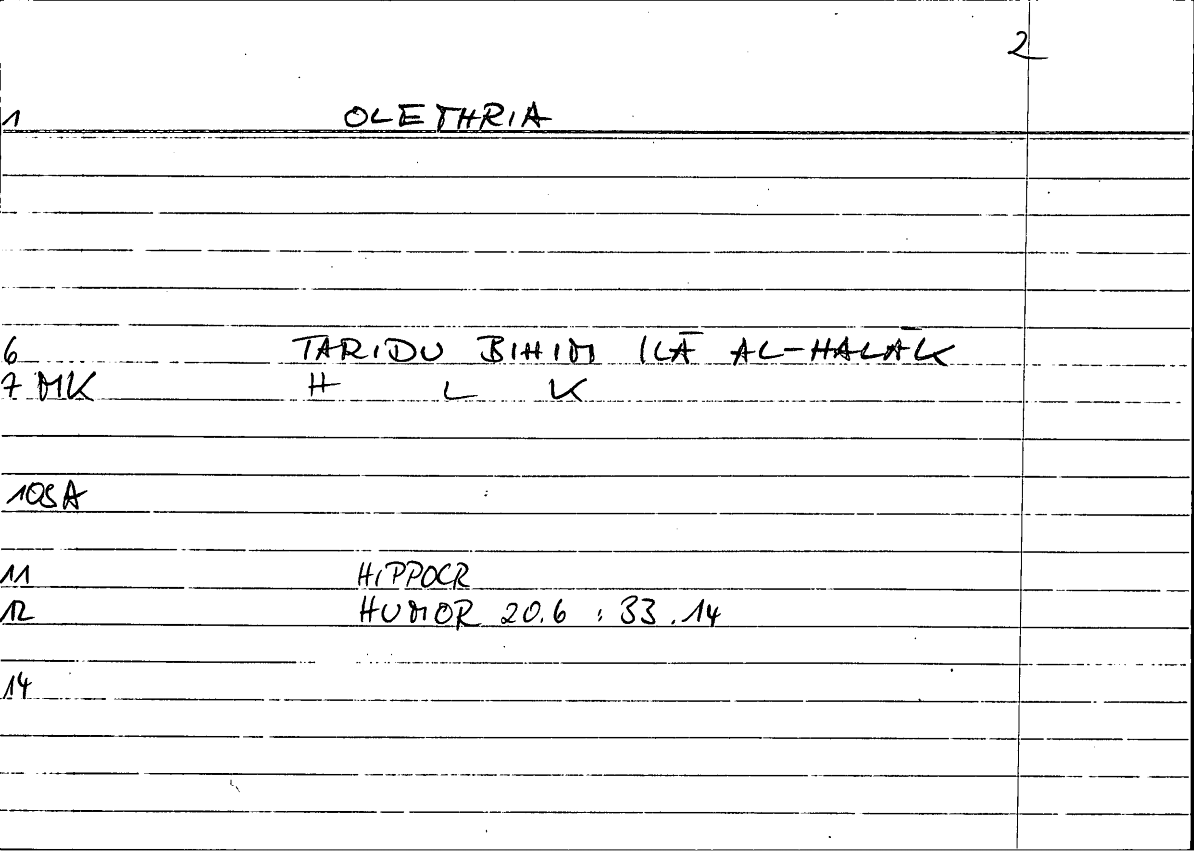 2
1 OLETHRIA
6 TARIDU BIHIM ILĀ AL-HALĀK
7 MK H L K
10SA
11 HIPPOCR
12 HUMOR 20.6 : 33.14
14